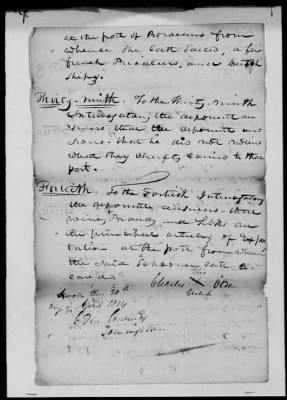 at the port of Bordeaux from
whence she last sailed, a few
french Privateers, and Dutch
Ships.
Thirty-ninth. To the thirty-ninth
Interrogatory the deponent an
swers that the deponent an
swers that he did not know
what they chiefly carried to that
port.
Fortieth. To the Fortieth Interrogatory
the deponent answers that
wine, Brandy and Silks are
the principal articles of Expor
tation at the port from whence
the said Schooner sails
Charles X
his
mark
Sworn this 30th
day of April 1814